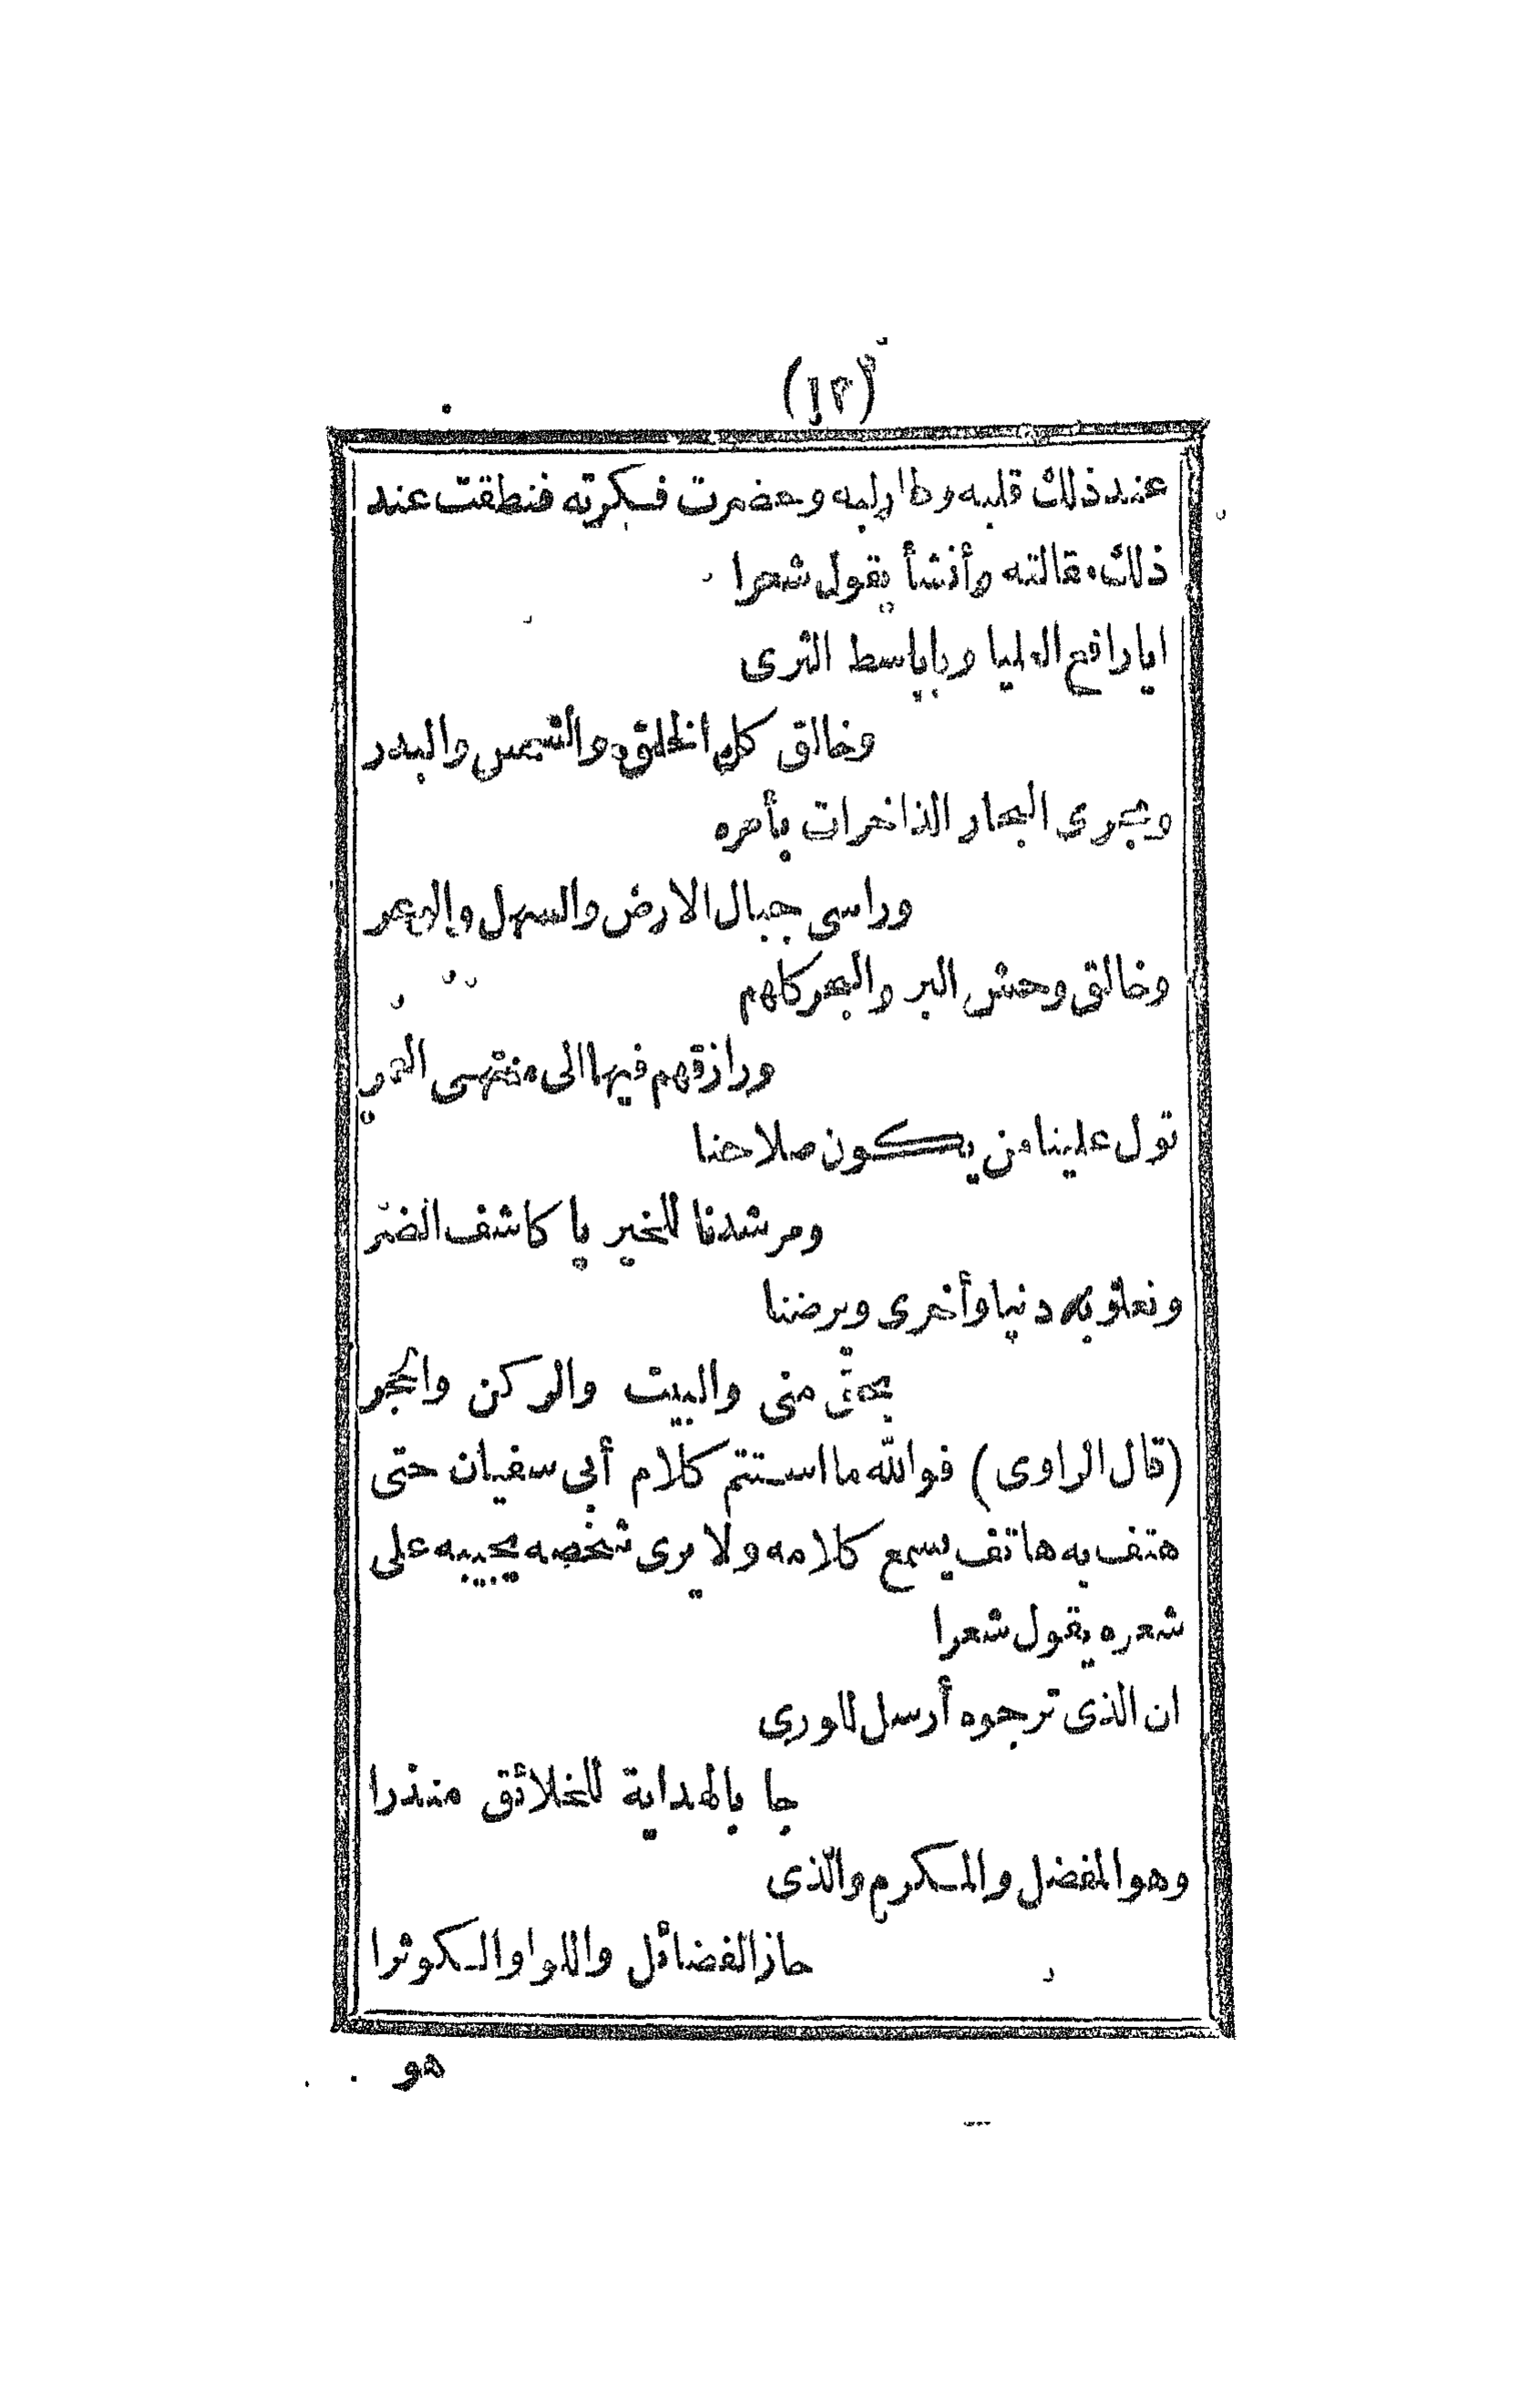 (١٢)
عند ذلك قلبه وطار لبه وحضرت فكرته فنطقت عند
ذلك مقالته وأنشأ يقول شعرا
ايا رافع العليا ويا باسط الثرى
وخالق كل الخلق والشمس والبدر
ومجرى البحار الذاخرات بأمره
وراسى جبال الارض والسهل والوعر
وخالق وحش البر والبحر كلهم
ورازقهم فيها الى منتهى العمر
تول علينا من يكون صلاحنا
ومرشدنا للخير يا كاشف الضر
ونعلو به دنيا وأخرى ويرضنا
بحق منى والبيت والركن والحجر
(قال الراوى) فوالله ما استتم كلام أبى سفيان حتى
هتف به هاتف يسمع كلامه ولا يرى شخصه يجيبه على
شعره يقول شعرا
ان الذى ترجوه أرسل للورى
جا بالهداية للخلائق منذرا
وهو المفضل والمكرم والذى
حاز الفضائل واللوا والكوثرا
هو